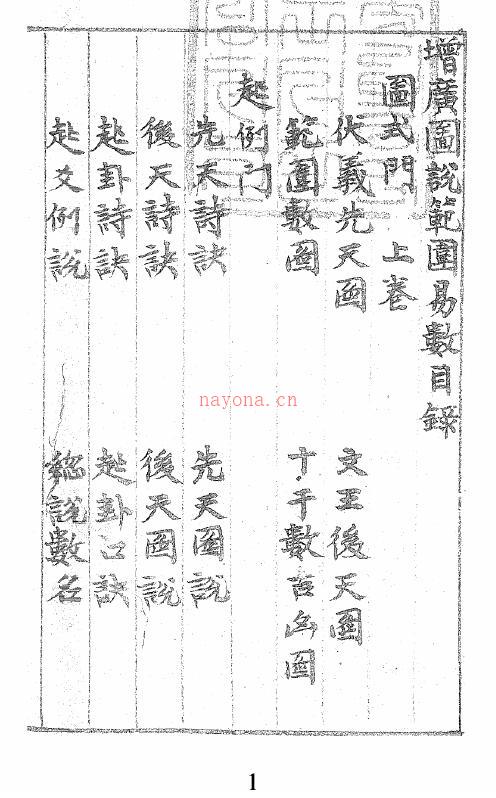 增廣圖說範圍易數目錄
圖式門 上卷
伏羲先天圖 文王後天圖
範圍數圖 十干數吉凶圖
起例门
先天詩訣 先天圖說
後天詩訣 後天圖說
起卦詩訣 起卦口訣
起爻例說 總說數名
nayona.cn
1